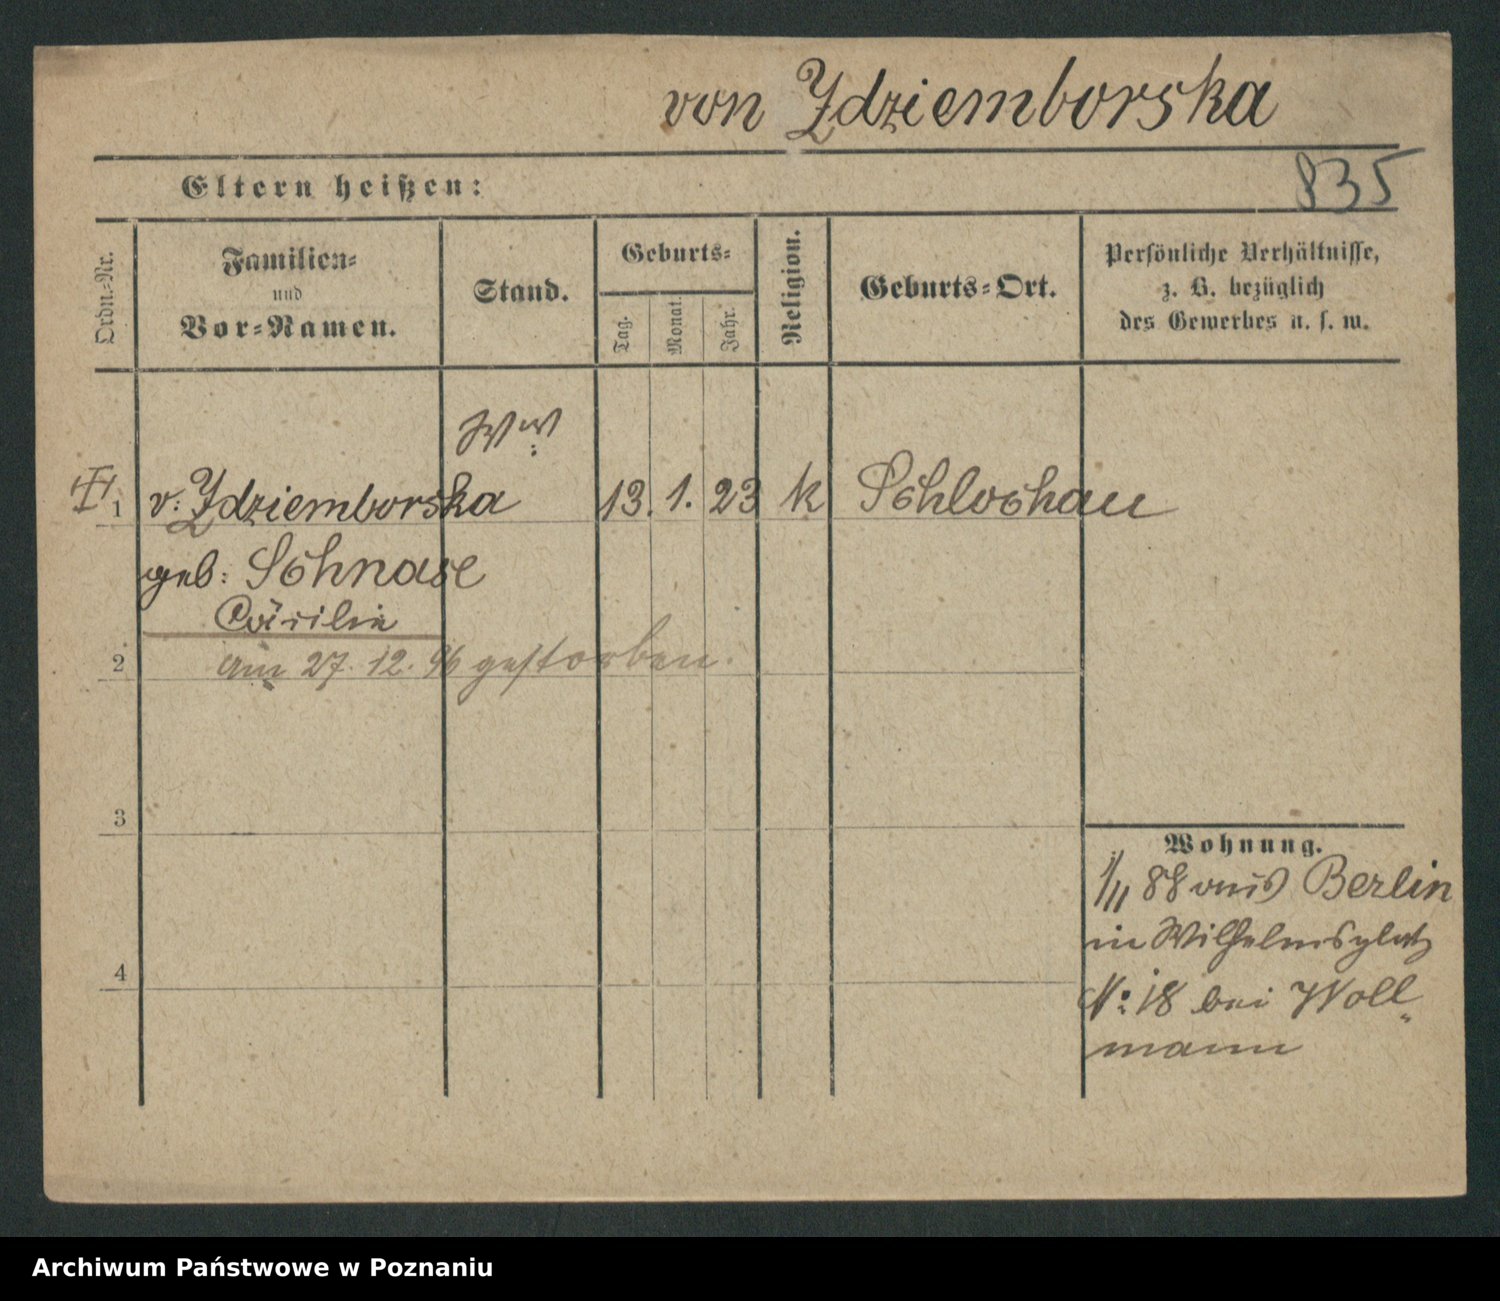 von Zdziemborska
835
Eltern heißen:
Ordn.-Nr.
Familien-
und
Vor-Namen.
Stand.
Geburts-
Tag.
Monat.
Jahr.
Religion.
Geburts-Ort.
Persönliche Verhältnisse,
z. B. bezüglich
des Gewerbes u. s. w.
Ww:
1 v: Zdziemborska 13. 1. 23 k Schlochau
geb: Schnase
Cäcilie
2 am 27. 12. 96 gestorben.
3
4
Wohnung.
1/11 88 aus Berlin
in Wilhelmsplatz
No: 18 bei Woll„
mann
Archiwum Państwowe w Poznaniu